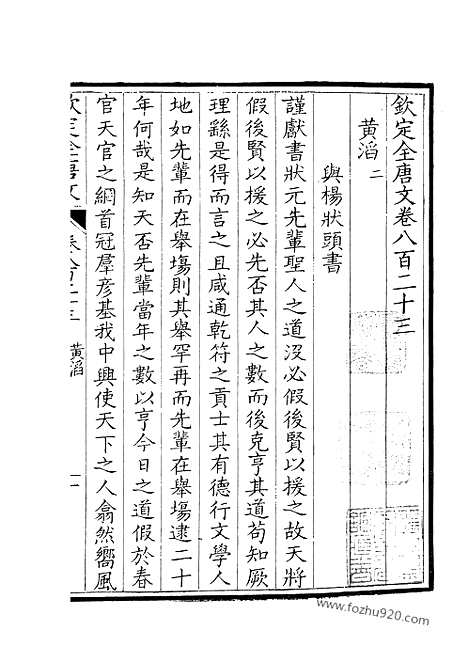 欽定全唐文卷八百二十三
黃滔二
與楊狀頭書
謹獻書狀元先輩聖人之道沒必假後賢以援之故天將
假後賢以援之必先否其人之數而後克亨其道苟知厥
理繇是得而言之且咸通乾符之貢士其有德行文學人
地如先輩而在舉塲則其舉罕再而先輩在舉塲逮二十
年何哉是知天否先輩當年之數以亨今日之道假於春
官天官之網首冠羣彥基我中興使天下之人翕然嚮風
欽定全唐文
卷八百二十三 黃滔
一
www.fozhu920.com